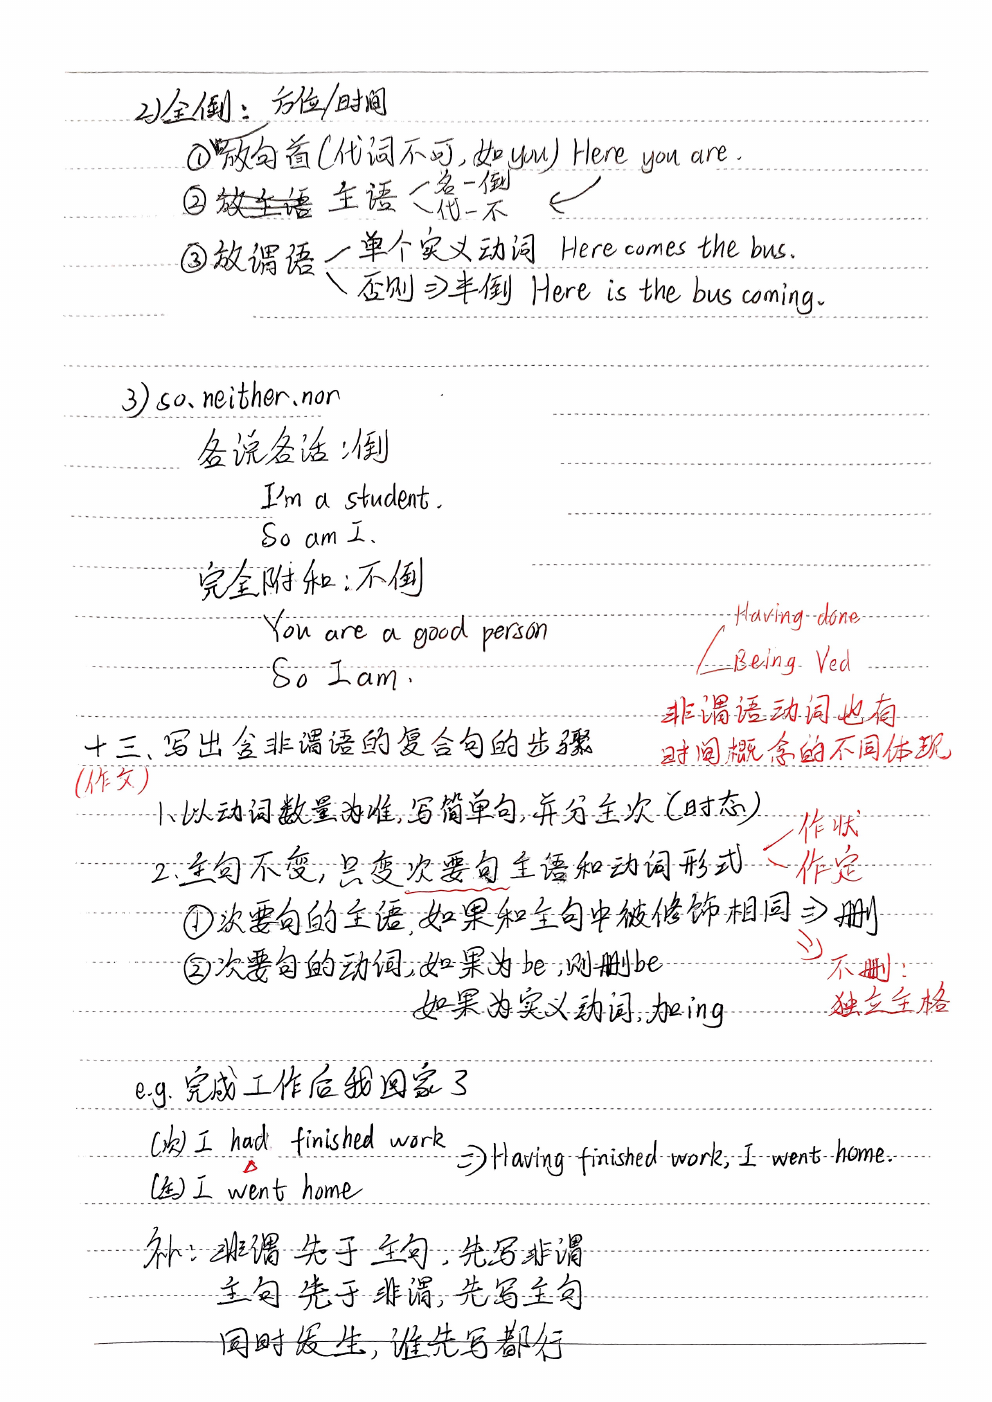 2)全倒：方位/时间
①放句首(代词不可,如you) Here you are.
②主语 名一倒
代一不
③放谓语 单个实义动词 Here comes the bus.
否则⇒半倒 Here is the bus coming.
3) so、neither、nor
各说各话：倒
I'm a student.
So am I.
完全附和：不倒
You are a good person
So I am.
Having done
Being Ved
非谓语动词也有
时间概念的不同体现
十三、写出含非谓语的复合句的步骤
(作文)
1、以动词数量为准,写简单句,并分主次(时态)
2.主句不变,只变次要句主语和动词形式
作状
作定
①次要句的主语,如果和主句中被修饰相同⇒删
②次要句的动词,如果为be,则删be
不删：
独立主格
如果为实义动词,加ing
e.g. 完成工作后我回家了
(次) I had finished work
⇒Having finished work, I went home.
(主) I went home
补：非谓先于主句,先写非谓
主句先于非谓,先写主句
同时发生,谁先写都行